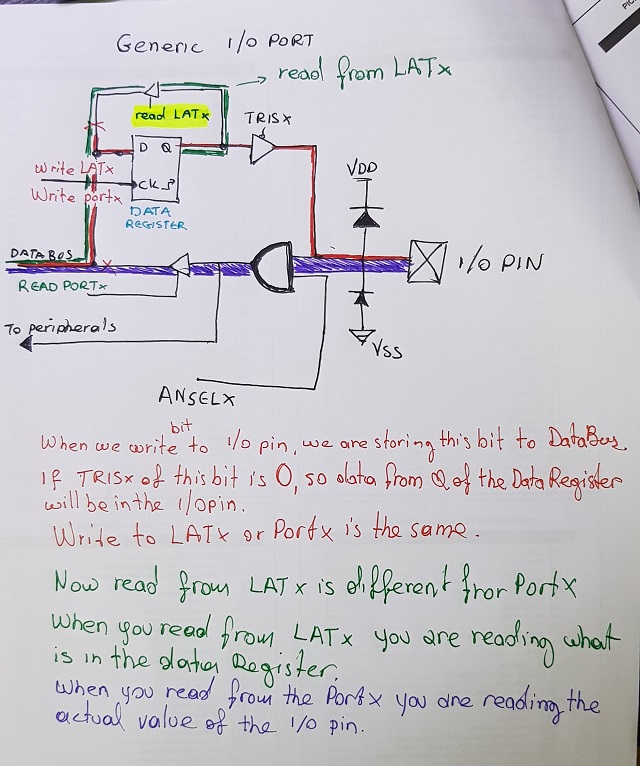 Generic I/O PORT
read from LATx
read LATx
TRISx
D Q
Write LATx
Write portx
CK
DATA
REGISTER
VDD
DATA BUS
READ PORTx
I/O PIN
To peripherals
VSS
ANSELX
bit
When we write to I/O pin, we are storing this bit to DataBus
If TRISx of this bit is 0, so data from Q of the Data Register
will be in the I/O pin.
Write to LATx or Portx is the same.
Now read from LATx is different fror PortX
When you read from LATx you are reading what
is in the data Register.
When you read from the Portx you are reading the
actual value of the I/O pin.